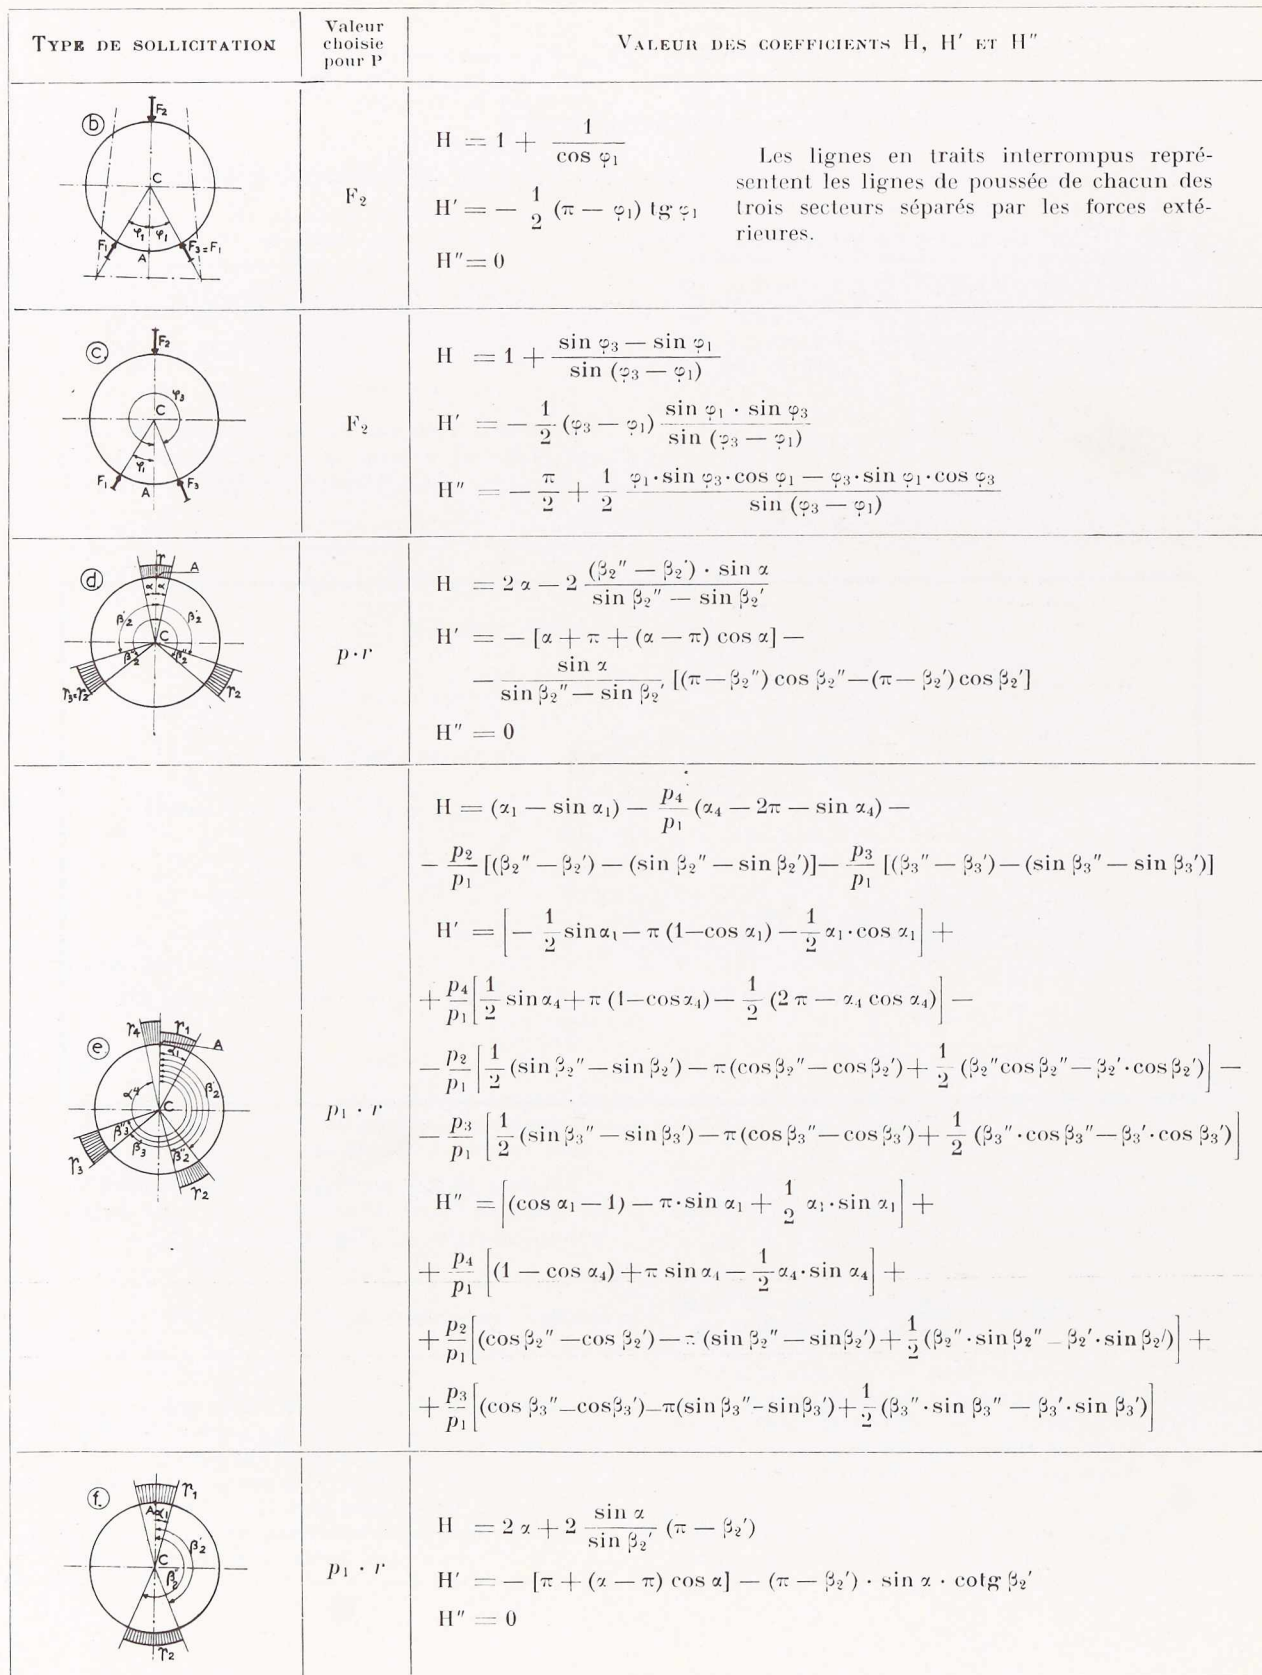 TYPE DE SOLLICITATION
Valeur
choisie
pour P
VALEUR DES COEFFICIENTS H, H′ ET H″
b
F₂
C
φ₁ φ₁
F₁
F₃ = F₁
A
F₂
H = 1 + 1 / cos φ₁
H′ = − 1/2 (π − φ₁) tg φ₁
H″ = 0
Les lignes en traits interrompus repré-
sentent les lignes de poussée de chacun des
trois secteurs séparés par les forces exté-
rieures.
c
F₂
φ₃
C
φ₁
F₁
A
F₃
F₂
H = 1 + (sin φ₃ − sin φ₁) / sin (φ₃ − φ₁)
H′ = − 1/2 (φ₃ − φ₁) (sin φ₁ · sin φ₃) / sin (φ₃ − φ₁)
H″ = − π/2 + 1/2 (φ₁·sin φ₃·cos φ₁ − φ₃·sin φ₁·cos φ₃) / sin (φ₃ − φ₁)
d
r
A
α α
β₂′ β₂′
C
β₂″ β₂″
r₃=r₂
r₂
p·r
H = 2 α − 2 ((β₂″ − β₂′) · sin α) / (sin β₂″ − sin β₂′)
H′ = − [α + π + (α − π) cos α] −
− sin α / (sin β₂″ − sin β₂′) [(π − β₂″) cos β₂″ − (π − β₂′) cos β₂′]
H″ = 0
e
r₄ r₁
A
α₁
β₂′
α₄
C
β₃″
β₃′
β₂″
r₃
r₂
p₁ · r
H = (α₁ − sin α₁) − p₄/p₁ (α₄ − 2π − sin α₄) −
− p₂/p₁ [(β₂″ − β₂′) − (sin β₂″ − sin β₂′)] − p₃/p₁ [(β₃″ − β₃′) − (sin β₃″ − sin β₃′)]
H′ = [− 1/2 sin α₁ − π (1 − cos α₁) − 1/2 α₁·cos α₁] +
+ p₄/p₁ [1/2 sin α₄ + π (1 − cos α₄) − 1/2 (2 π − α₄ cos α₄)] −
− p₂/p₁ [1/2 (sin β₂″ − sin β₂′) − π (cos β₂″ − cos β₂′) + 1/2 (β₂″ cos β₂″ − β₂′·cos β₂′)] −
− p₃/p₁ [1/2 (sin β₃″ − sin β₃′) − π (cos β₃″ − cos β₃′) + 1/2 (β₃″·cos β₃″ − β₃′·cos β₃′)]
H″ = [(cos α₁ − 1) − π·sin α₁ + 1/2 α₁·sin α₁] +
+ p₄/p₁ [(1 − cos α₄) + π sin α₄ − 1/2 α₄·sin α₄] +
+ p₂/p₁ [(cos β₂″ − cos β₂′) − π (sin β₂″ − sin β₂′) + 1/2 (β₂″·sin β₂″ − β₂′·sin β₂′)] +
+ p₃/p₁ [(cos β₃″ − cos β₃′) − π (sin β₃″ − sin β₃′) + 1/2 (β₃″·sin β₃″ − β₃′·sin β₃′)]
f.
r₁
A α₁
β₂′
C
β₂″
r₂
p₁ · r
H = 2 α + 2 sin α / sin β₂′ (π − β₂′)
H′ = − [π + (α − π) cos α] − (π − β₂′) · sin α · cotg β₂′
H″ = 0